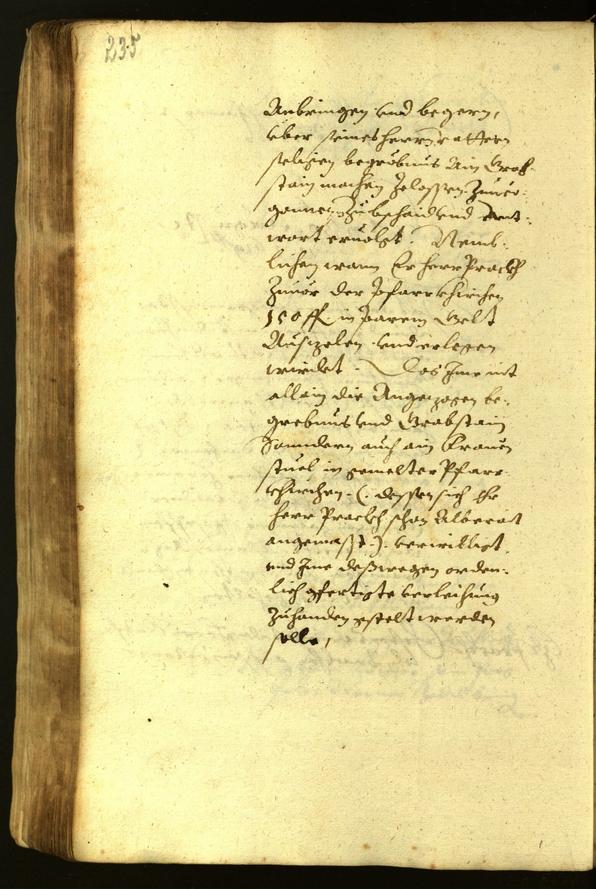 235
Anbringen und begern,
uber seines herrn vattern
seligen begrebnus ain Grab-
stain machen zelassen. Zuuer-
gonnen, zu bschaid und Ant-
wort ervolgt. Nemb-
lichen wann Er herr Prackh
Zuuor der Pfarrkhirchen
150 ff. in parem Gelt
Auszelen und erlegen
wirdet. Das Ime nit
allain die Angezogen be-
grebnus und Grabstain
Sonndern auch ain Frauen
stuel in gemelter Pfarr-
khirchen. (: dessen sich Ehr
herr Prackh schon Alberait
angemasst :) bewilligt,
und Ime desswegen orden-
lich gfertigte verleihung
Zuhanden gestelt werden
solle,